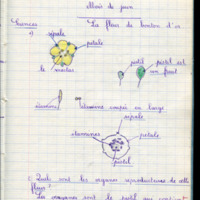 Sciences
La fleur de bouton d'or
1)
sépale
pétale
le
pistil
pistil est
un fruit
étamine
étamine coupée en
sépale
étamines
pétale
pistil
Quels sont les organes reproducteurs de cette
fleur ?
Les organes sont le pistil qui contient